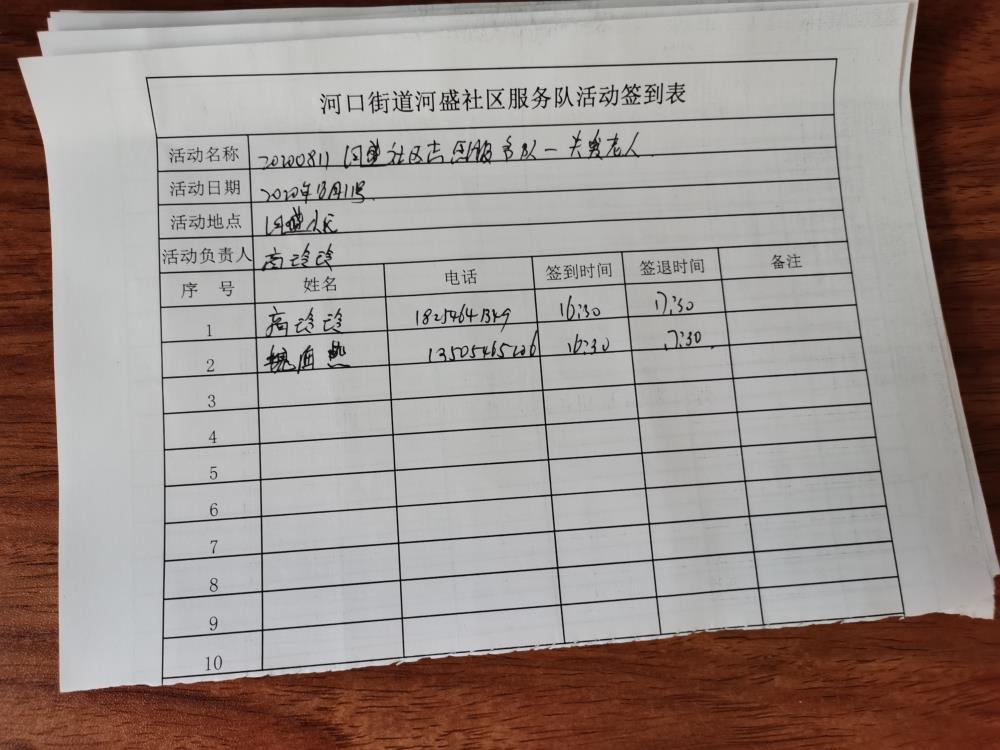 河口街道河盛社区服务队活动签到表
活动名称 20200811 河盛社区志愿服务队一关爱老人
活动日期 2020年8月11号
活动地点 河盛小区
活动负责人 高玲玲
序 号 姓名 电话 签到时间 签退时间 备注
1 高玲玲 18254641349 16:30 17:30
2 海燕 16:30 17:30
3
4
5
6
7
8
9
10